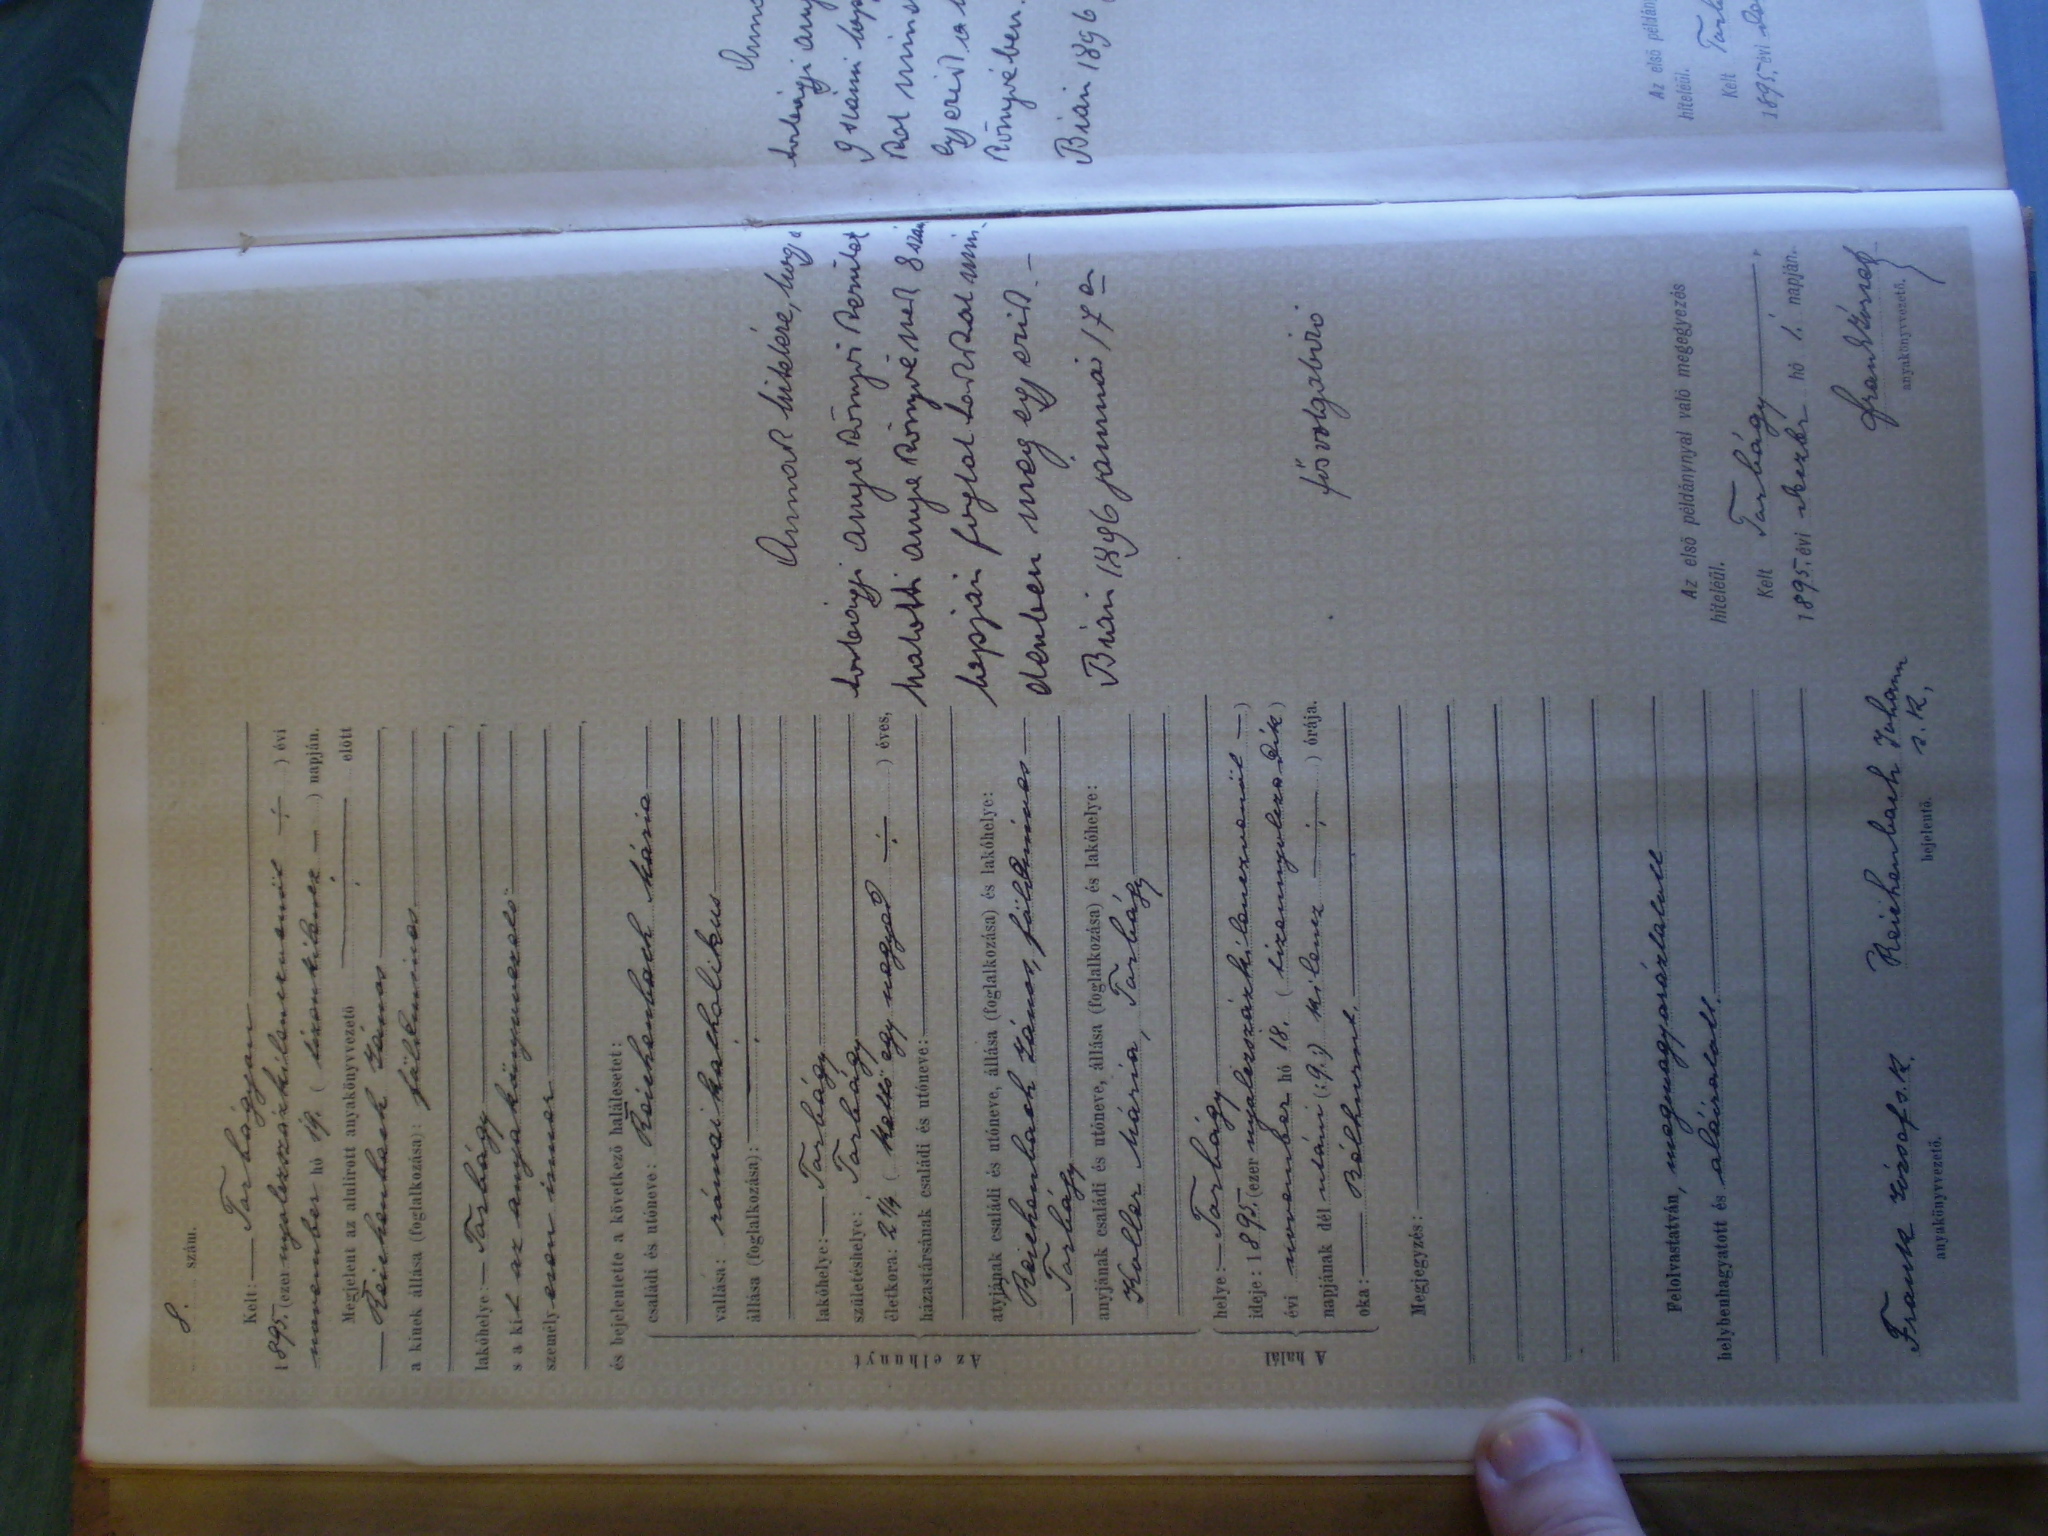 8. szám.
Kelt: Torbágyon
1895. (ezer nyolczszázkilenczvenöt ÷ ) évi
november hó 19. ( tizenkilencz — ) napján.
Megjelent az alulirott anyakönyvvezető előtt
Reichenbach János
a kinek állása (foglalkozása): földmives
lakóhelye: Torbágy
s a kit az anyakönyvvezető
személyesen ismer
és bejelentette a következő halálesetet:
Az elhunyt
családi és utóneve: Reichenbach Mária
vallása: római katholikus
állása (foglalkozása):
lakóhelye: Torbágy
születéshelye: Torbágy
életkora: 2¼ ( kettő egy negyed ÷ ) éves,
házastársának családi és utóneve:
atyjának családi és utóneve, állása (foglalkozása) és lakóhelye:
Reichenbach János, földmives
Torbágy
anyjának családi és utóneve, állása (foglalkozása) és lakóhelye:
Koller Mária, Torbágy
A halál
helye: Torbágy
ideje: 1895. (ezer nyolczszázkilenczvenöt — )
évi november hó 18. ( tizennyolczadik )
napjának dél utáni (:9.:) kilencz ÷ ) órája.
oka: Bélhurut.
Megjegyzés:
Felolvastatván, megmagyaráztatott
helybenhagyatott és aláiratott.
Frank József s. k.
anyakönyvvezető.
Reichenbach Johann
s. k.
bejelentő.
Annak hitelére, hogy a
torbágyi anyakönyvi kerület
halotti anyakönyvének 8 szá
lapján foglaltakkal min-
denben meg egyezik. —
Bián 1896 januá 17 én
főszolgabiró
Az első példánynyal való megegyezés
hiteléül.
Kelt Torbágy
1895. évi deczbr hó 1. napján.
Frank József
anyakönyvvezető.
Anna
torbágyi any
9 számi lap
kal min
egyezik a
könyvében.
Bián 1896
Az első példán
hiteléül.
Kelt Torb
1895. évi de